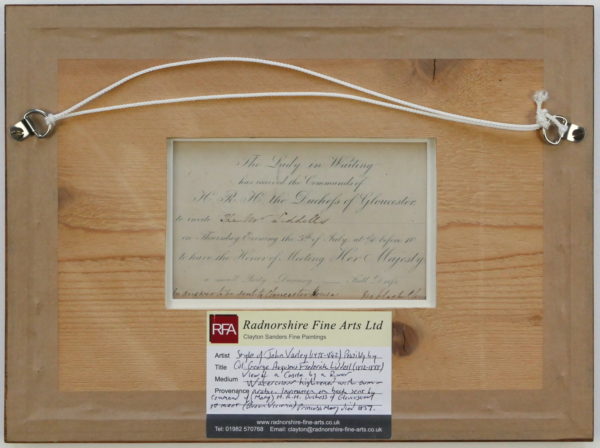 The Lady in Waiting
has received the Commands of
H. R. H. the Duchess of Gloucester
to invite The Mr
on Thursday Evening the 5th of July, at before 10
to have the Honor of Meeting Her Majesty
a small Party Dancing Full Dress
An answer to be sent to Gloucester House
RFA
Radnorshire Fine Arts Ltd
Clayton Sanders Fine Paintings
Artist Style of John Varley (1778-1842) Possibly by
Title Col George Augustus Frederick
View of a Castle by a River
Medium Watercolour
Provenance invitation on back sent by
Command of (Mary) H.R.H. Duchess of Gloucester
to meet (Queen Victoria) Princess Mary died 1857.
www.radnorshire-fine-arts.co.uk
Tel: 01982 570768 Email: clayton@radnorshire-fine-arts.co.uk